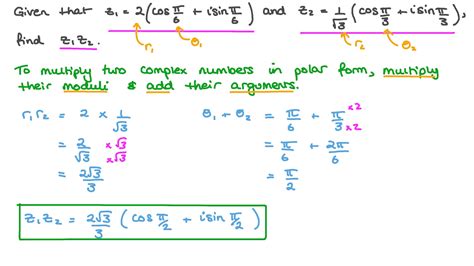 Given that z₁ = 2(cos π/6 + i sin π/6) and z₂ = 1/√3 (cos π/3 + i sin π/3),
r₁ θ₁ r₂ θ₂
find z₁z₂.
To multiply two complex numbers in polar form, multiply
their moduli & add their arguments.
r₁r₂ = 2 × 1/√3
= 2/√3 ×√3 ×√3
= 2√3/3
θ₁ + θ₂ = π/6 + π/3 ×2 ×2
= π/6 + 2π/6
= π/2
z₁z₂ = 2√3/3 (cos π/2 + i sin π/2)